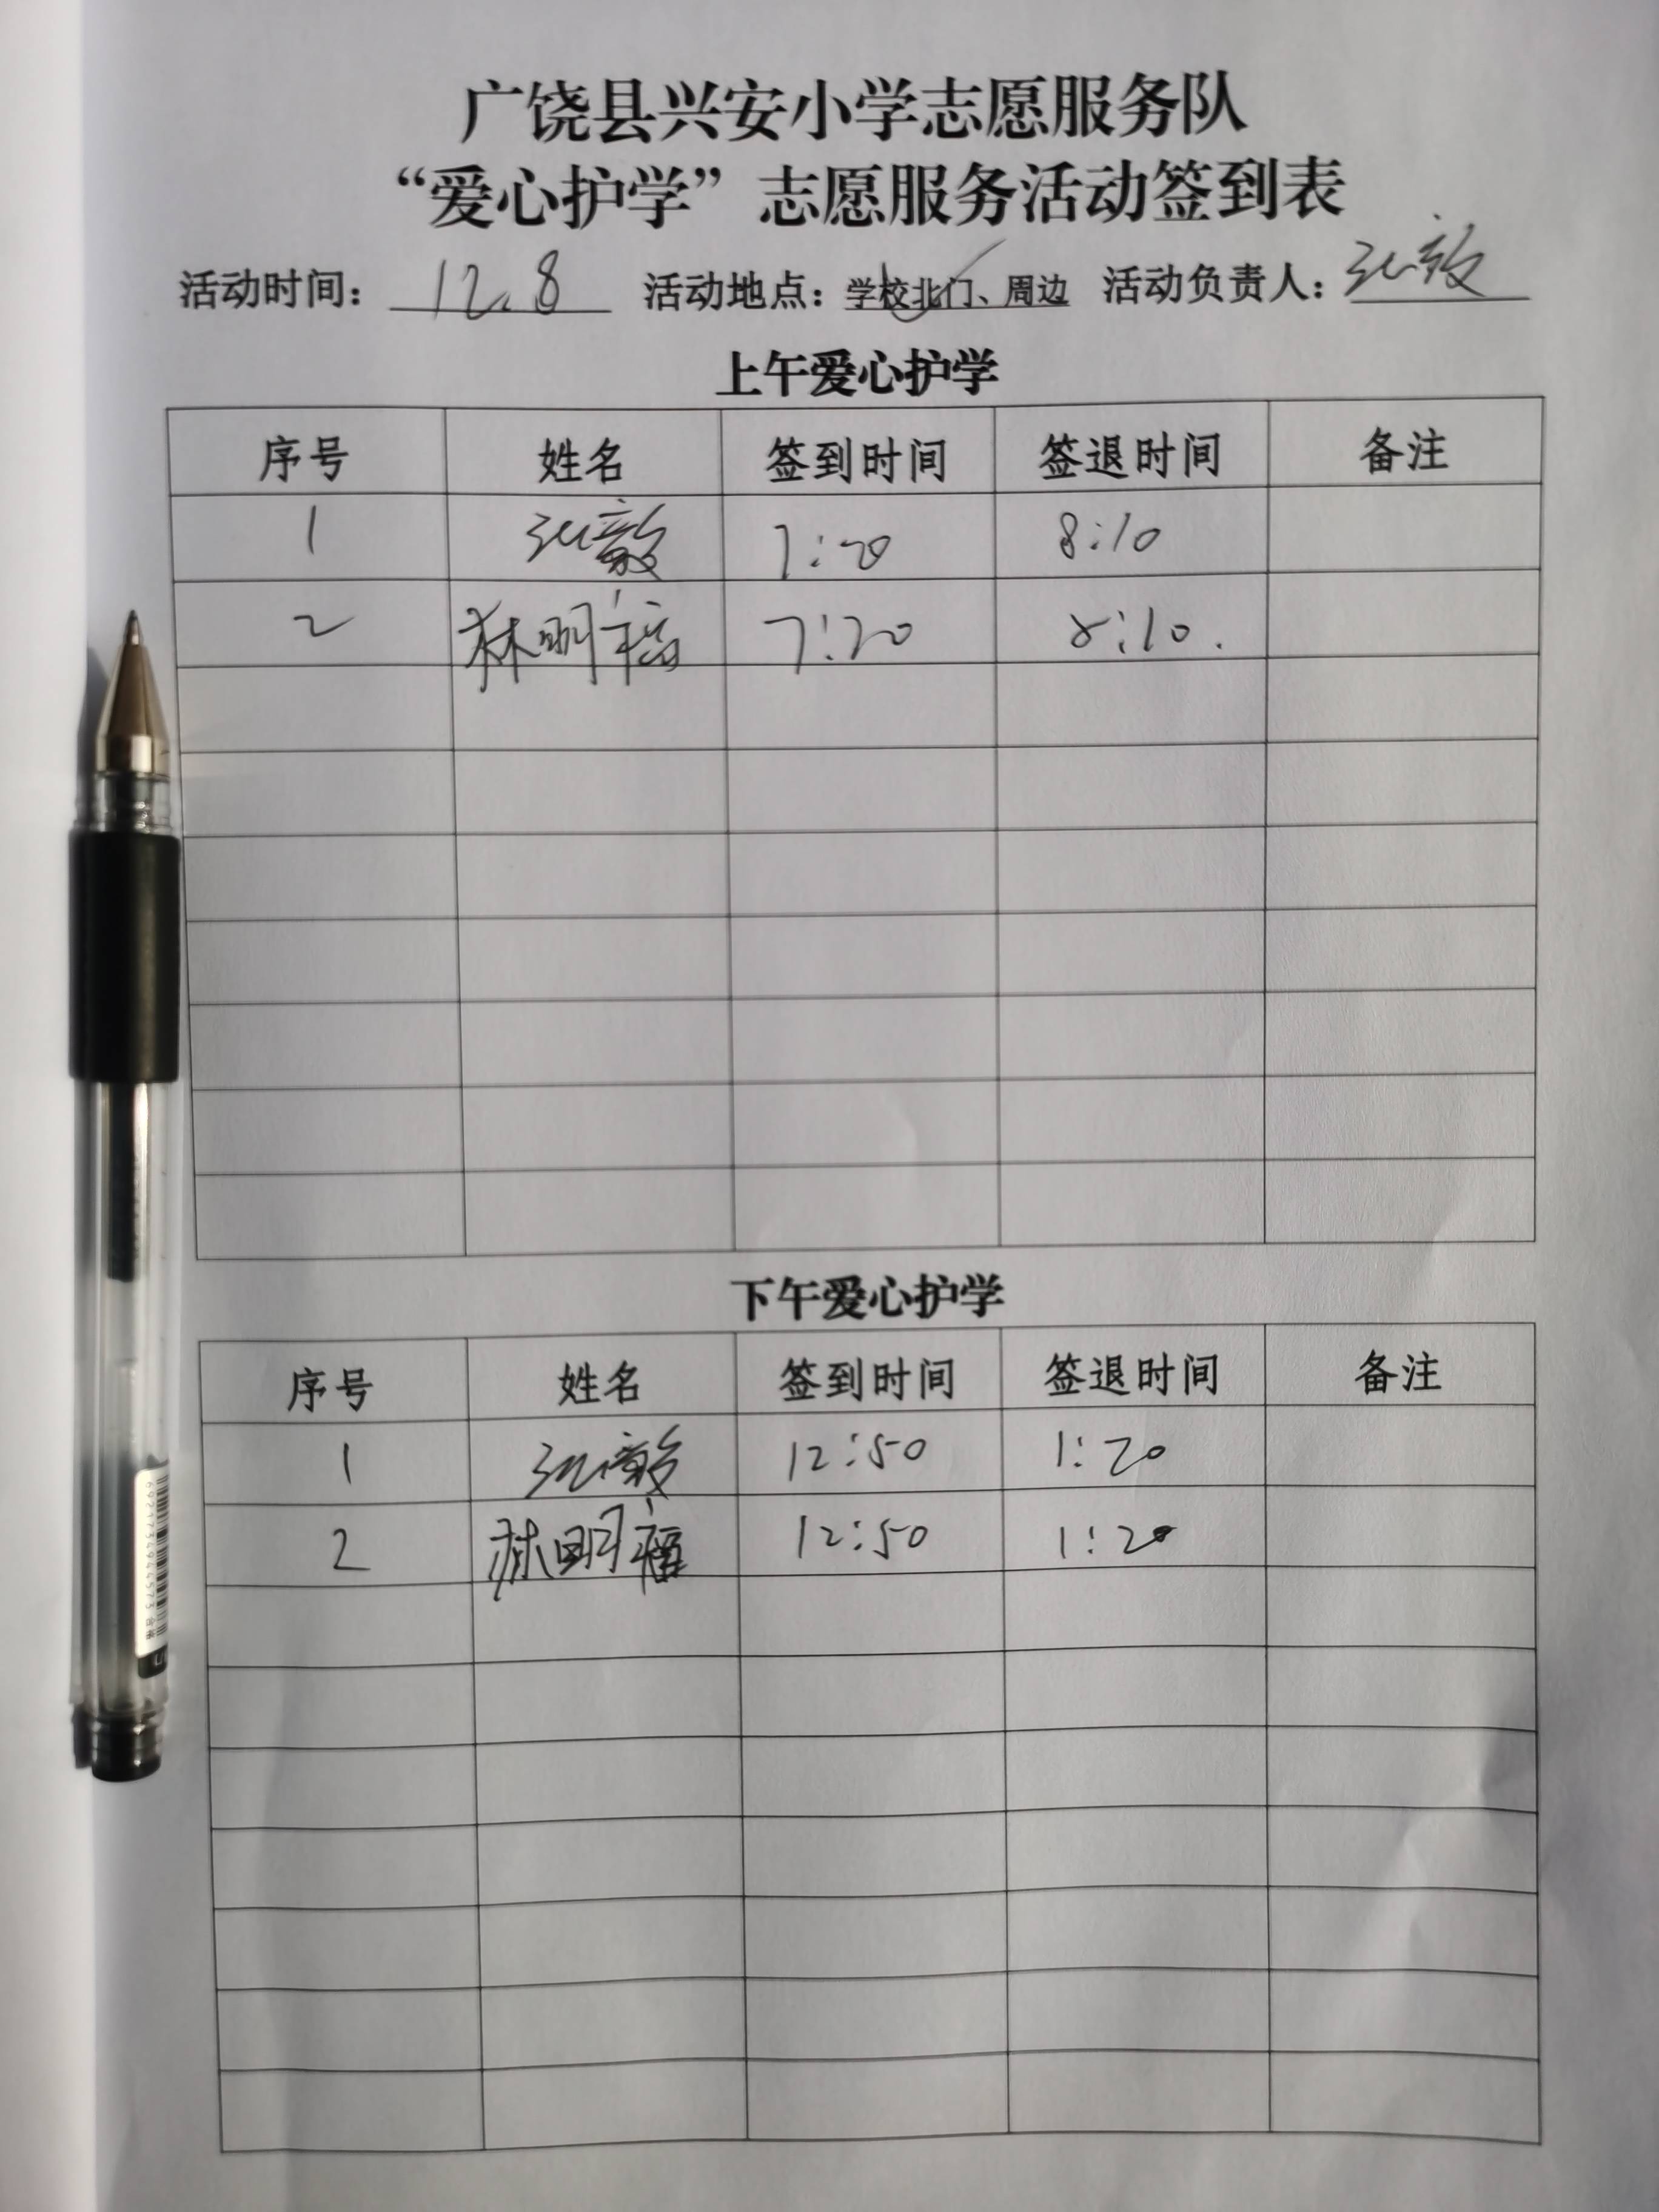 广饶县兴安小学志愿服务队
“爱心护学”志愿服务活动签到表
活动时间：12.8 活动地点：学校北门、周边 活动负责人：
上午爱心护学
序号 姓名 签到时间 签退时间 备注
1 7:20 8:10
2 林明福 7:20 8:10.
下午爱心护学
序号 姓名 签到时间 签退时间 备注
1 12:50 1:20
2 林明福 12:50 1:20